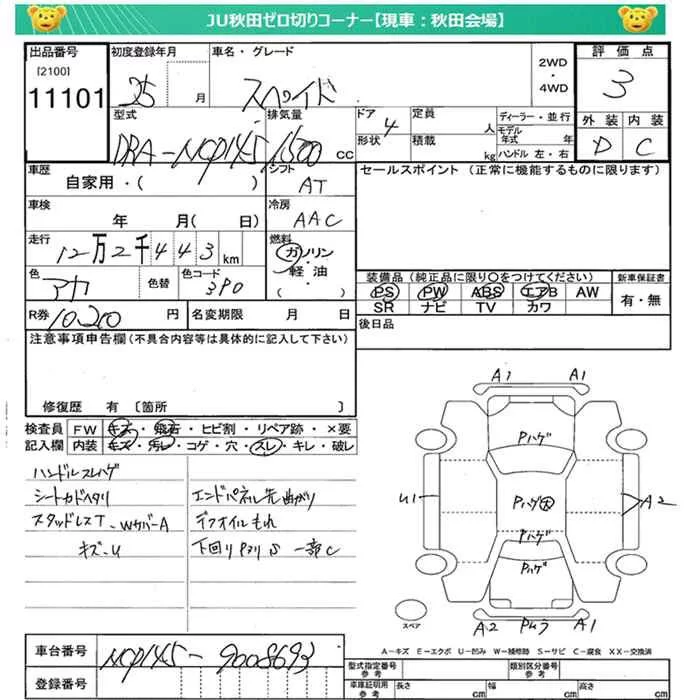 JU秋田ゼロ切りコーナー【現車：秋田会場】
出品番号 初度登録年月 車名・グレード 2WD ・ 4WD 評価点
[2100]
11101 25 月 スペイド 3
型式 排気量 ドア 4 定員 人 ディーラー・並行 外装 内装
形状 積載 kg モデル年式 年 ハンドル 左・右
DBA-NCP145 1500 CC D C
車歴 シフト セールスポイント (正常に機能するものに限ります)
自家用・( ) AT
車検 冷房
年 月( 日) AAC
走行 燃料
12万2千443km ガソリン・軽油・( )
色 色替 色コード 装備品 (純正品に限り○をつけてください) 新車保証書
アカ 3P0 PS PW ABS エアB AW 有・無
SR ナビ TV カワ
R券 10200 円 名変期限 月 日 後日品
注意事項申告欄 (不具合内容等は具体的に記入して下さい)
修復歴 有 〔箇所 〕
検査員 FW キズ・飛石・ヒビ割・リペア跡・×要
記入欄 内装 キズ・汚レ・コゲ・穴・スレ・キレ・破レ
ハンドルスレハゲ
シートカドヘタリ
スタッドレスT-WカバーA
キズ-U
エンドパネル先曲がり
デフオイルもれ
下回りPヌリS 一部C
A1 A1
Pハゲ
U1 Pハゲ A2
Pハゲ
Pハゲ
スペア A2 Pムラ A1
A-キズ E-エクボ U-凹み W-補修跡 S-サビ C-腐食 XX-交換済
車台番号 NCP145-9008693
登録番号
型式指定番号 参考 類別区分番号 参考
車庫証明用 参考 長さ cm 幅 cm 高さ cm